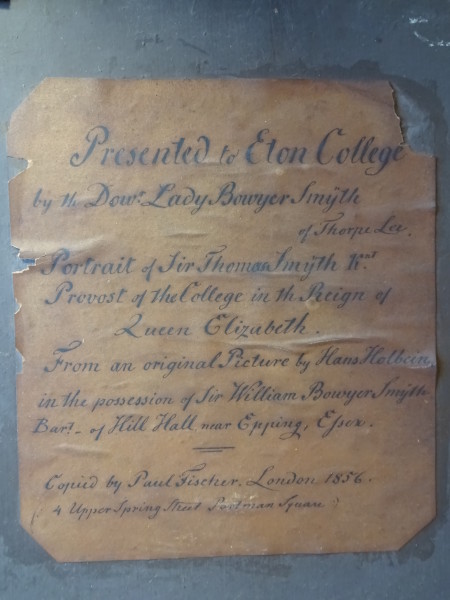 Presented to Eton College
by th Dowr. Lady Bowyer Smÿth
of Thorpe Lee.
Portrait of Sir Thomas Smÿth Knt.
Provost of the College in th Reign of
Queen Elizabeth.
From an original Picture by Hans Holbein,
in the possession of Sir William Bowyer Smÿth
Bart. of Hill Hall near Epping, Essex.
Copied by Paul Fischer, London 1856.
(4 Upper Spring Street Portman Square)